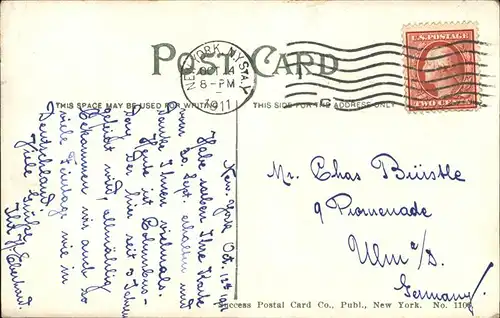 POST CARD
NEW YORK, N.Y. STA. Y
OCT 14
8-PM
1911
U.S. POSTAGE
TWO CENTS
THIS SPACE MAY BE USED FOR WRITING
THIS SIDE FOR THE ADDRESS ONLY
New-York Oct. 12th 1911
Habe soeben Ihre Karte
vom 30. Sept. erhalten und
danke Ihnen vielmals.
Heute ist Columbus-
Day. Der hier seit 3 Jahren
gefeiert wird, allmählig
bekommen wir auch so
viele Feiertage wie in
Deutschland.
Viele Grüße
Eberhard.
Mr. Chas Büüstle
9 Promenade
Ulm a/D.
Germany!
Success Postal Card Co., Publ., New York. No.